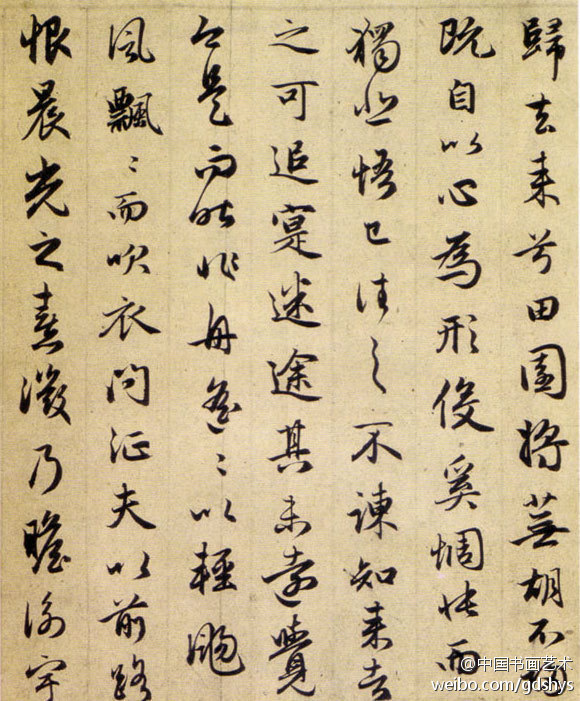 歸去来兮田園将蕪胡不歸
既自以心為形役奚惆悵而
獨悲悟已往之不諫知来者
之可追寔迷途其未遠覺
今是而昨非舟遥〻以輕颺
風飄〻而吹衣問征夫以前路
恨晨光之熹微乃瞻衡宇
@中国书画艺术
weibo.com/gdshys